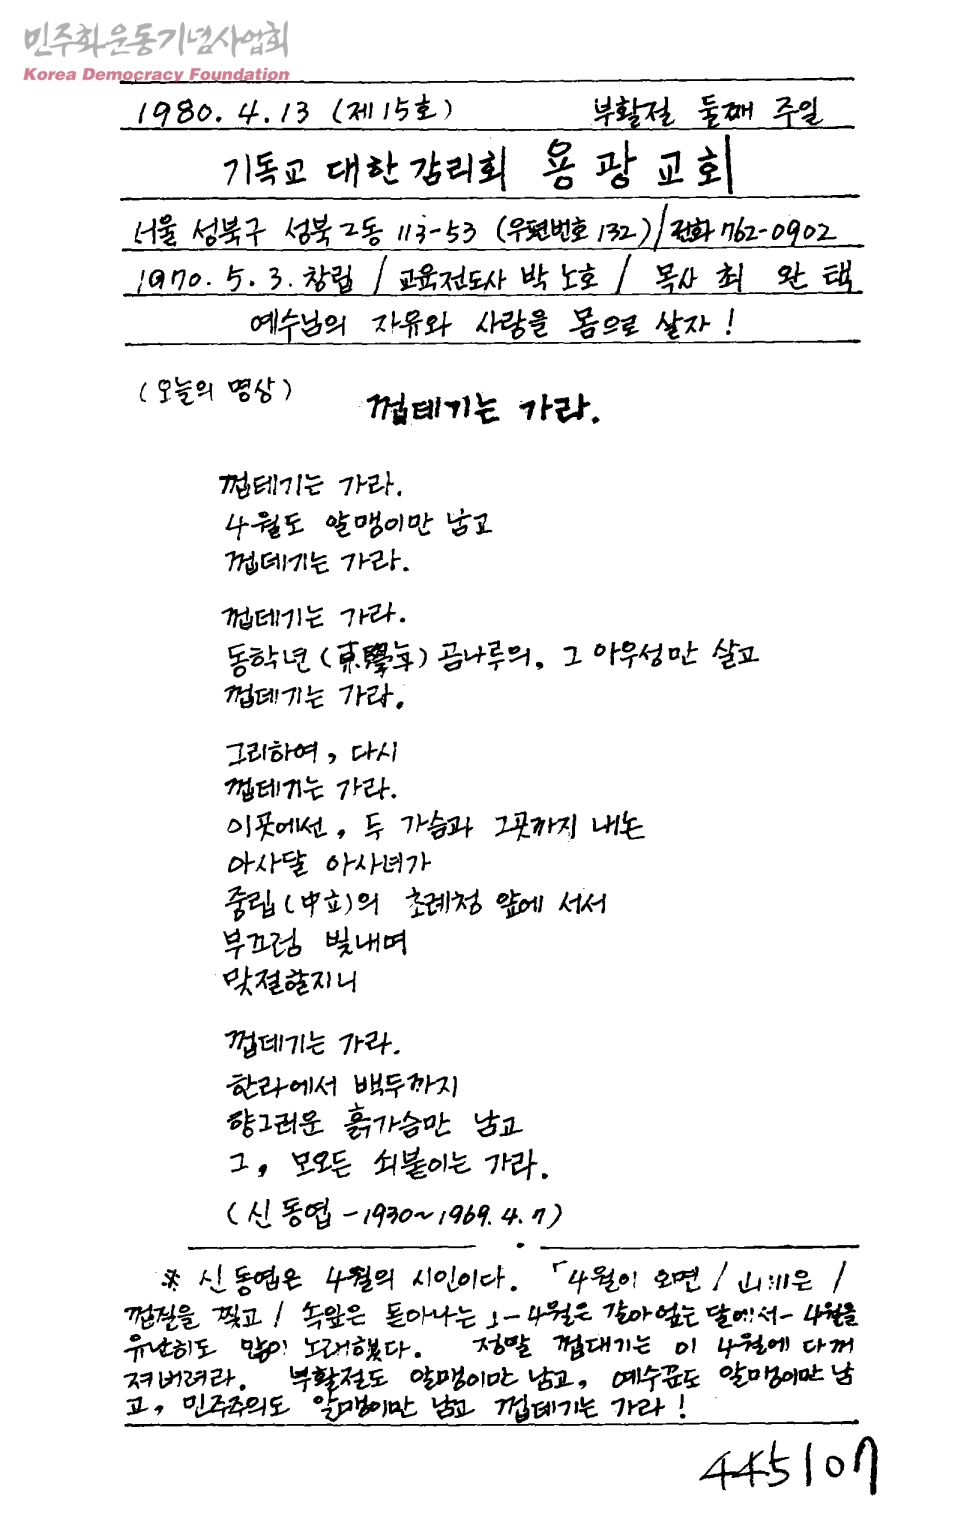 민주화운동기념사업회
Korea Democracy Foundation
1980. 4. 13 (제15호) 부활절 둘째 주일
기독교 대한감리회 용광교회
서울 성북구 성북2동 113-53 (우편번호 132) / 전화 762-0902
1970. 5. 3. 창립 / 교육전도사 박노호 / 목사 최완택
예수님의 자유와 사랑을 몸으로 살자!
(오늘의 명상) 껍데기는 가라.
껍데기는 가라.
4월도 알맹이만 남고
껍데기는 가라.
껍데기는 가라.
동학년(東學年) 곰나루의, 그 아우성만 살고
껍데기는 가라.
그리하여, 다시
껍데기는 가라.
이곳에선, 두 가슴과 그곳까지 내논
아사달 아사녀가
중립(中立)의 초례청 앞에 서서
부끄럼 빛내며
맞절할지니
껍데기는 가라.
한라에서 백두까지
향그러운 흙가슴만 남고
그, 모오든 쇠붙이는 가라.
(신동엽 - 1930~1969. 4. 7)
※ 신동엽은 4월의 시인이다. 「4월이 오면 / 山川은 /
껍질을 찢고 / 속잎은 돋아나는」 - 4월은 갈아엎는 달에서 - 4월을
유난히도 많이 노래했다. 정말 껍대기는 이 4월에 다 꺼
져버려라. 부활절도 알맹이만 남고, 예수꾼도 알맹이만 남
고, 민주주의도 알맹이만 남고 껍데기는 가라!
445107